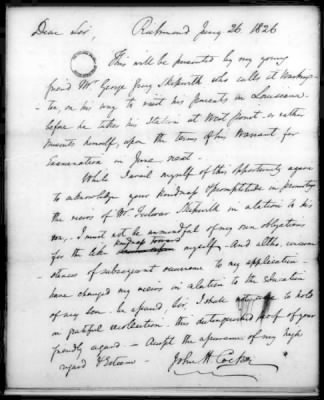 Dear Sir, Richmond Jany 26. 1826
This will be presented by my young
friend Mr George Gray Skipwith who calls at Washing-
-ton, on his way to visit his Parents in Louisiana
before he takes his Station at West Point. or rather
presents himself, upon the terms of his Warrant for
Examination in June next.
While I avail myself of this opportunity again
to acknowledge your kindness & promptitude in promoting
the views of Mr Fulwar Skipwith in relation to his
son, I must not be unmindful of my own obligations
for the like kindness toward myself. And altho, circum
stances of subsequent occurrence to my application
have changed my views in relation to the Education
of my son. be assured, Sir, I shall not to hold
in grateful recollection this distinguished proof of your
friendly regard. – Accept the assurance of my high
regard & Esteem –
John H Cocke